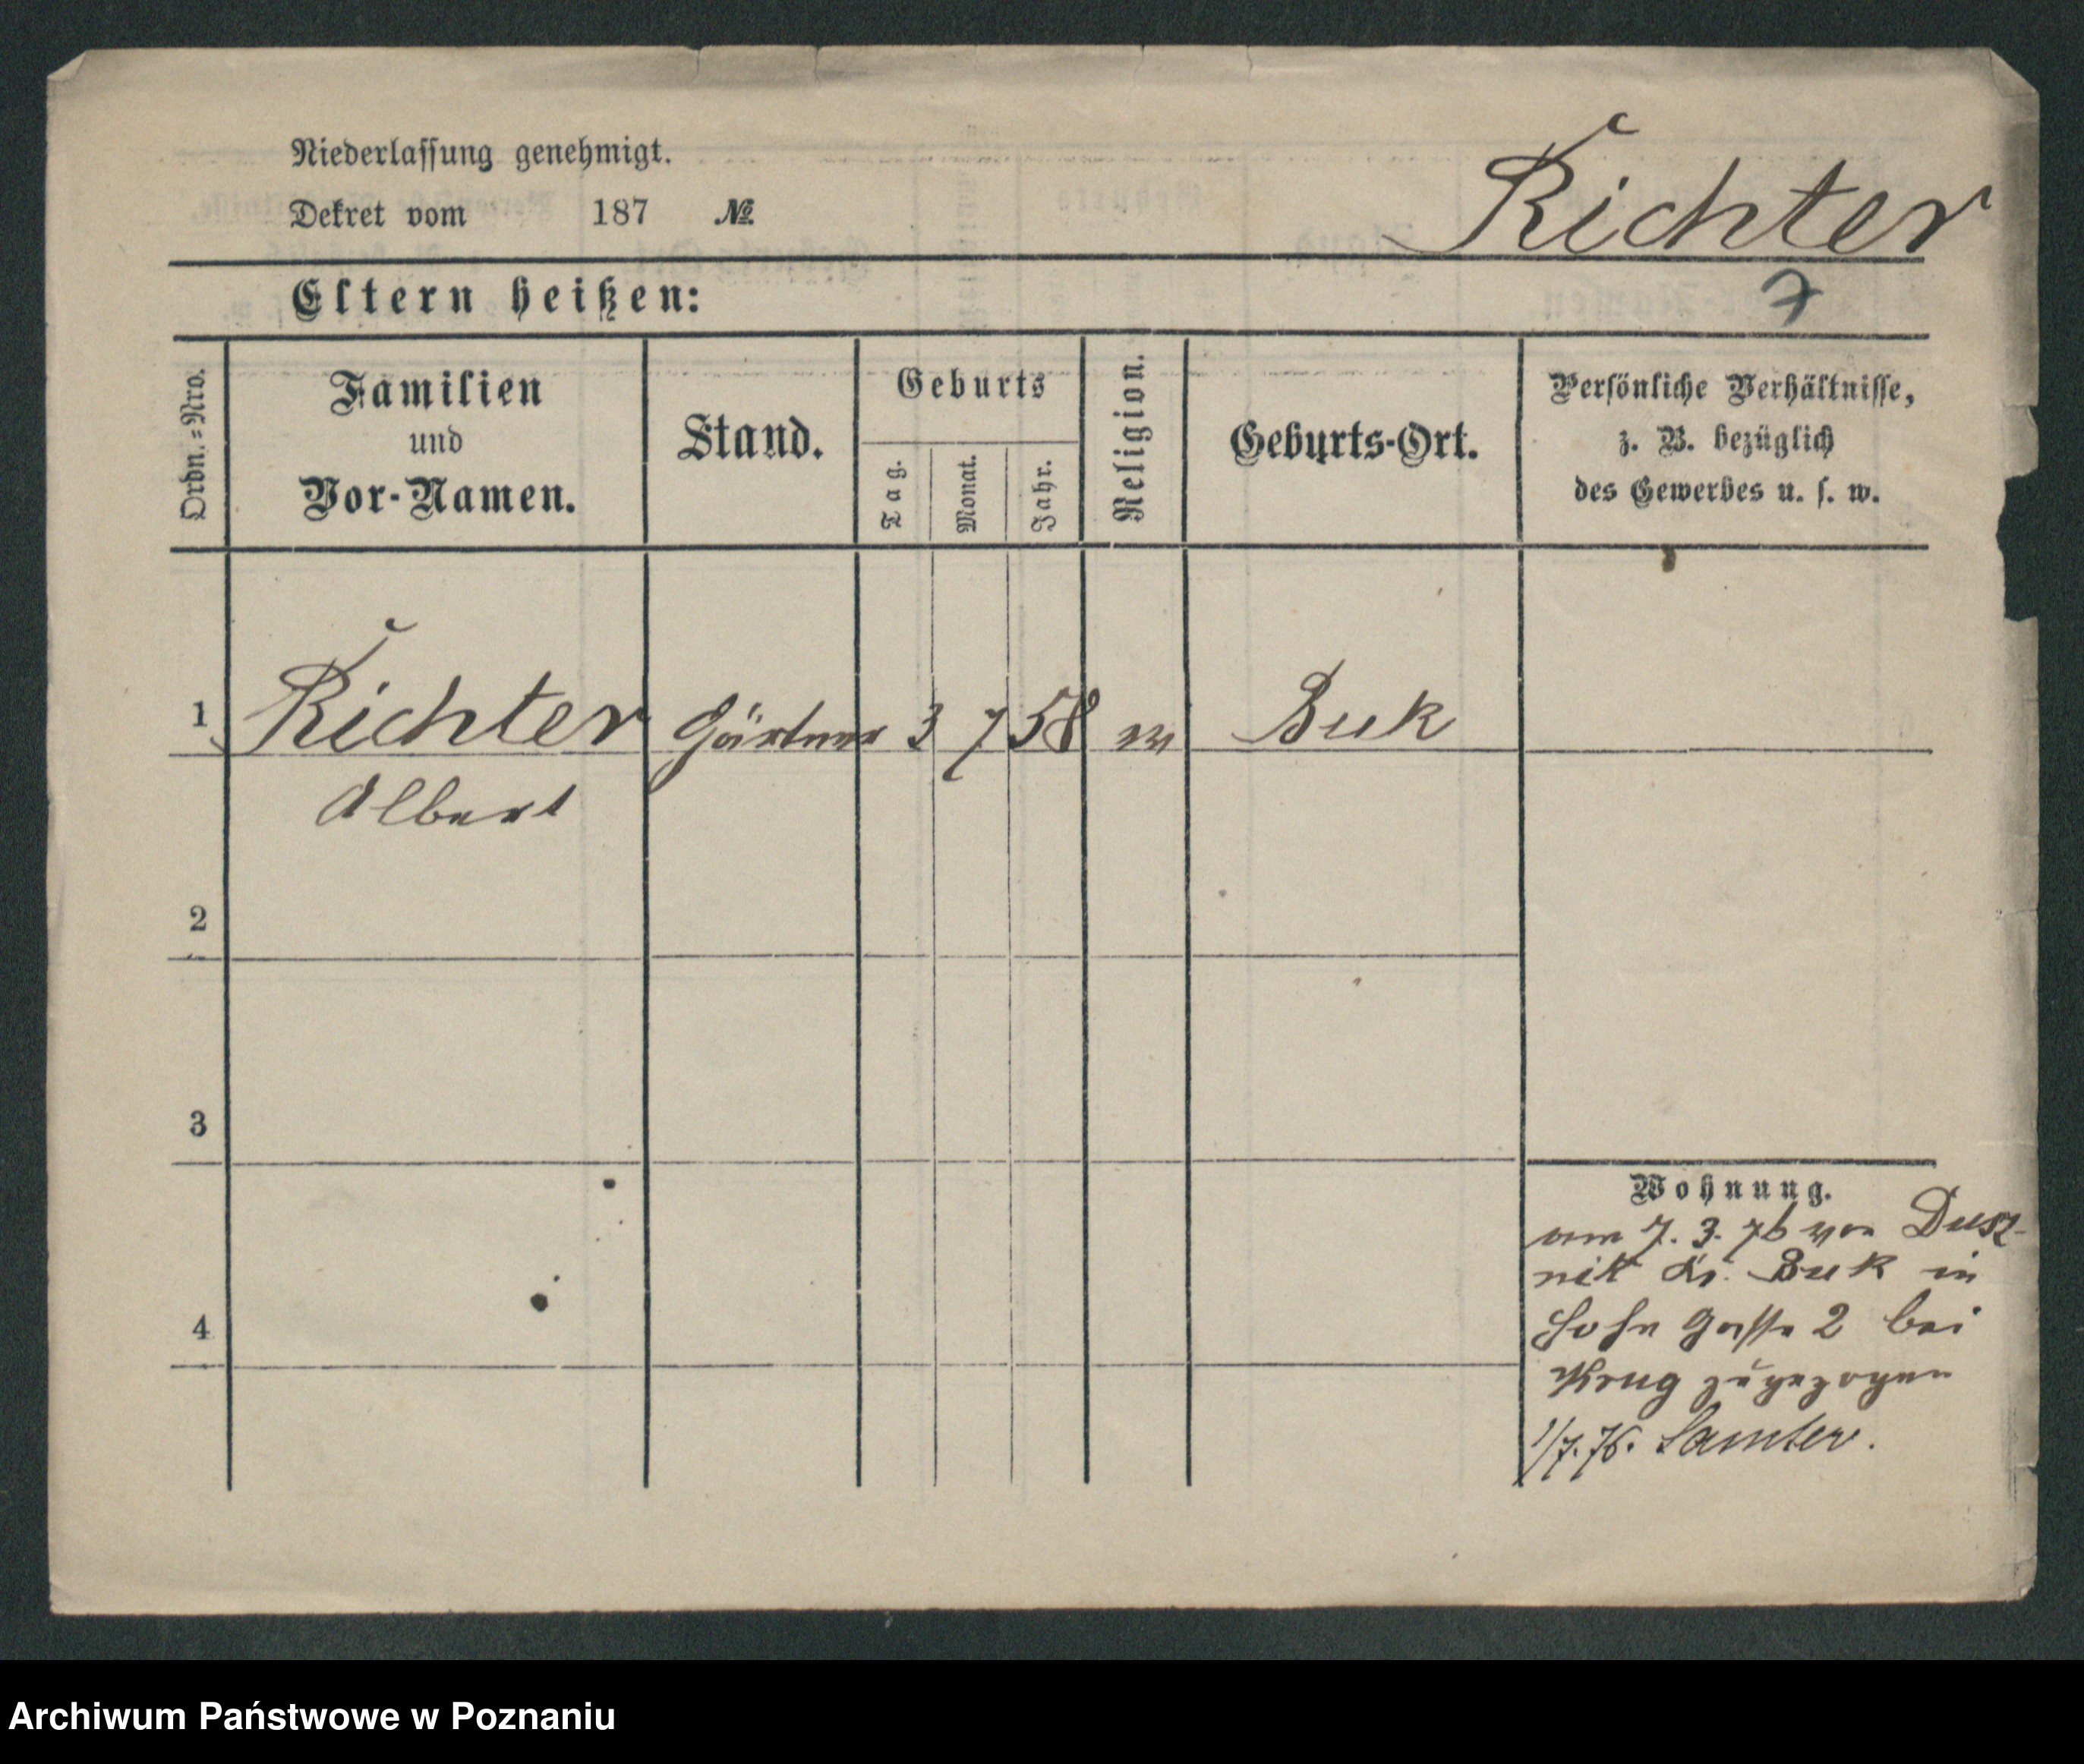 Niederlassung genehmigt.
Richter
Dekret vom 187 №
Eltern heißen:
7
Ordn.=Nro.
Familien
und
Vor-Namen.
Stand.
Geburts
Tag.
Monat.
Jahr.
Religion.
Geburts-Ort.
Persönliche Verhältnisse,
z. B. bezüglich
des Gewerbes u. s. w.
1 Richter Gärtner 3 7 58 Buk
Albert
2
3
4
Wohnung.
am 7. 3. 76 von Dusz-
nik Kr. Buk in
Hohe Gasse 2 bei
Krug zugezogen
1/7. 76. Samter.
Archiwum Państwowe w Poznaniu